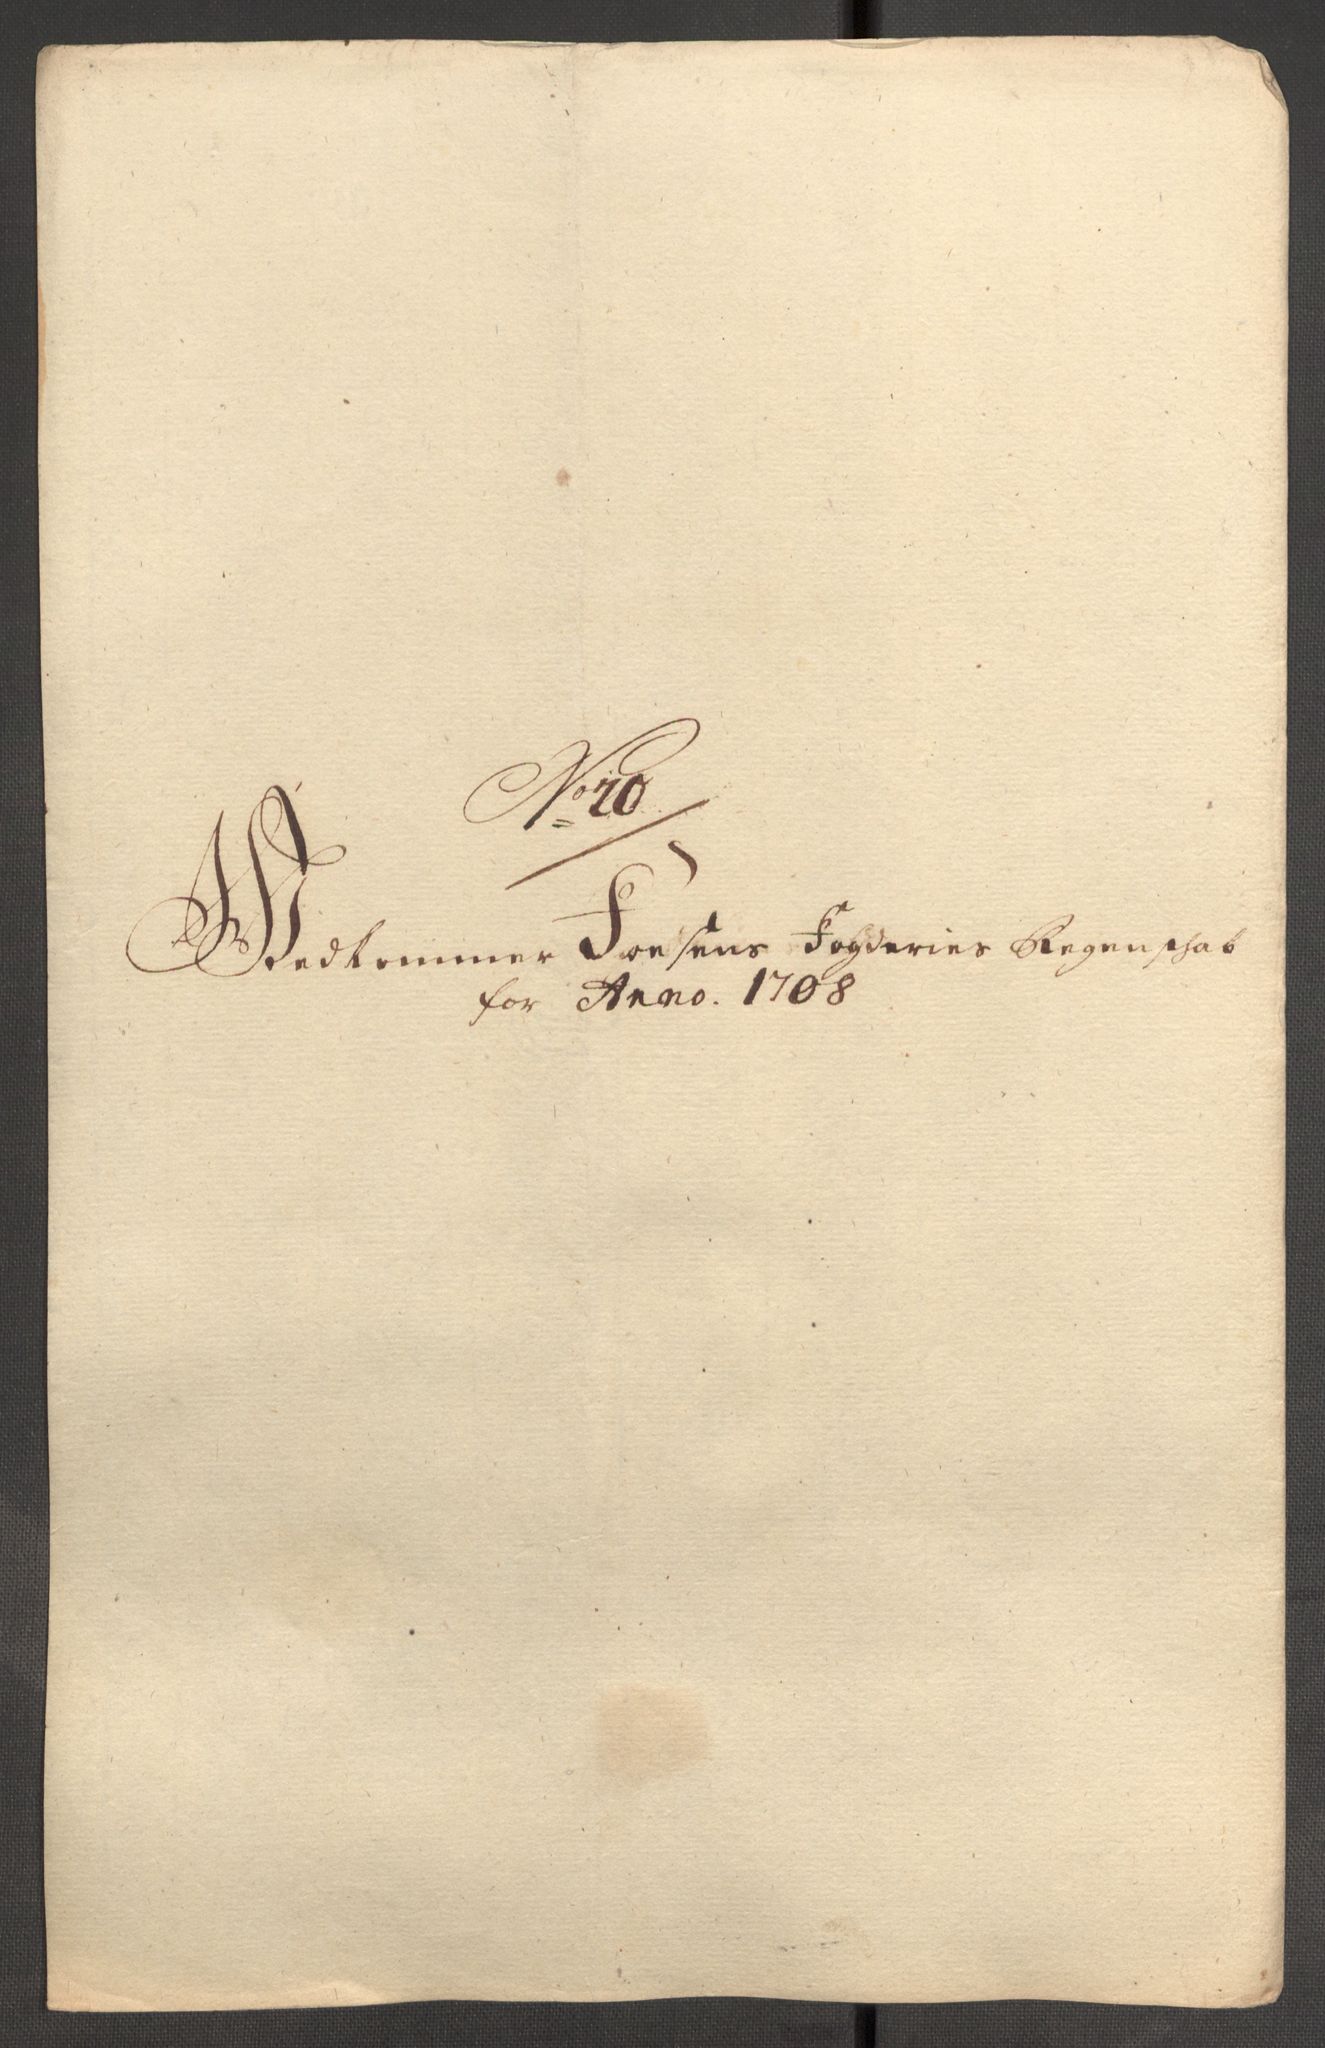 No 20
Vedkommer Foesens Fogderies Regenschab
for Anno. 1708